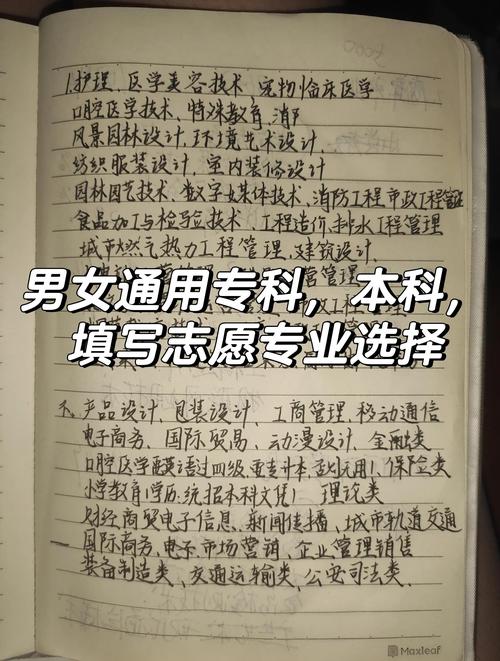 1.护理、医学美容技术、宠物临床医学
口腔医学技术、特殊教育,消
风景园林设计,环境艺术设计,
纺织服装设计,室内装修设计
园林园艺技术、数字媒体技术,消防工程市政工程管
食品加工与检验技术、工程造价,排水工程管理
城市燃气热力工程管理,建筑设计,
营管理
男女通用专科，本科，
填写志愿专业选择
产品设计、包装设计、工商管理,移动通信
电子商务、国际贸易、动漫设计、金融类
口腔医学要英语过四级,要专升本,否则无用!、保险类
小学教育(学历:统招本科文凭) 理论类
财经商贸电子信息、新闻传播、城市轨道交通
国际商务、电子、市场营销、企业管理销售
装备制造类、交通运输类、公安司法类.
Maxleaf